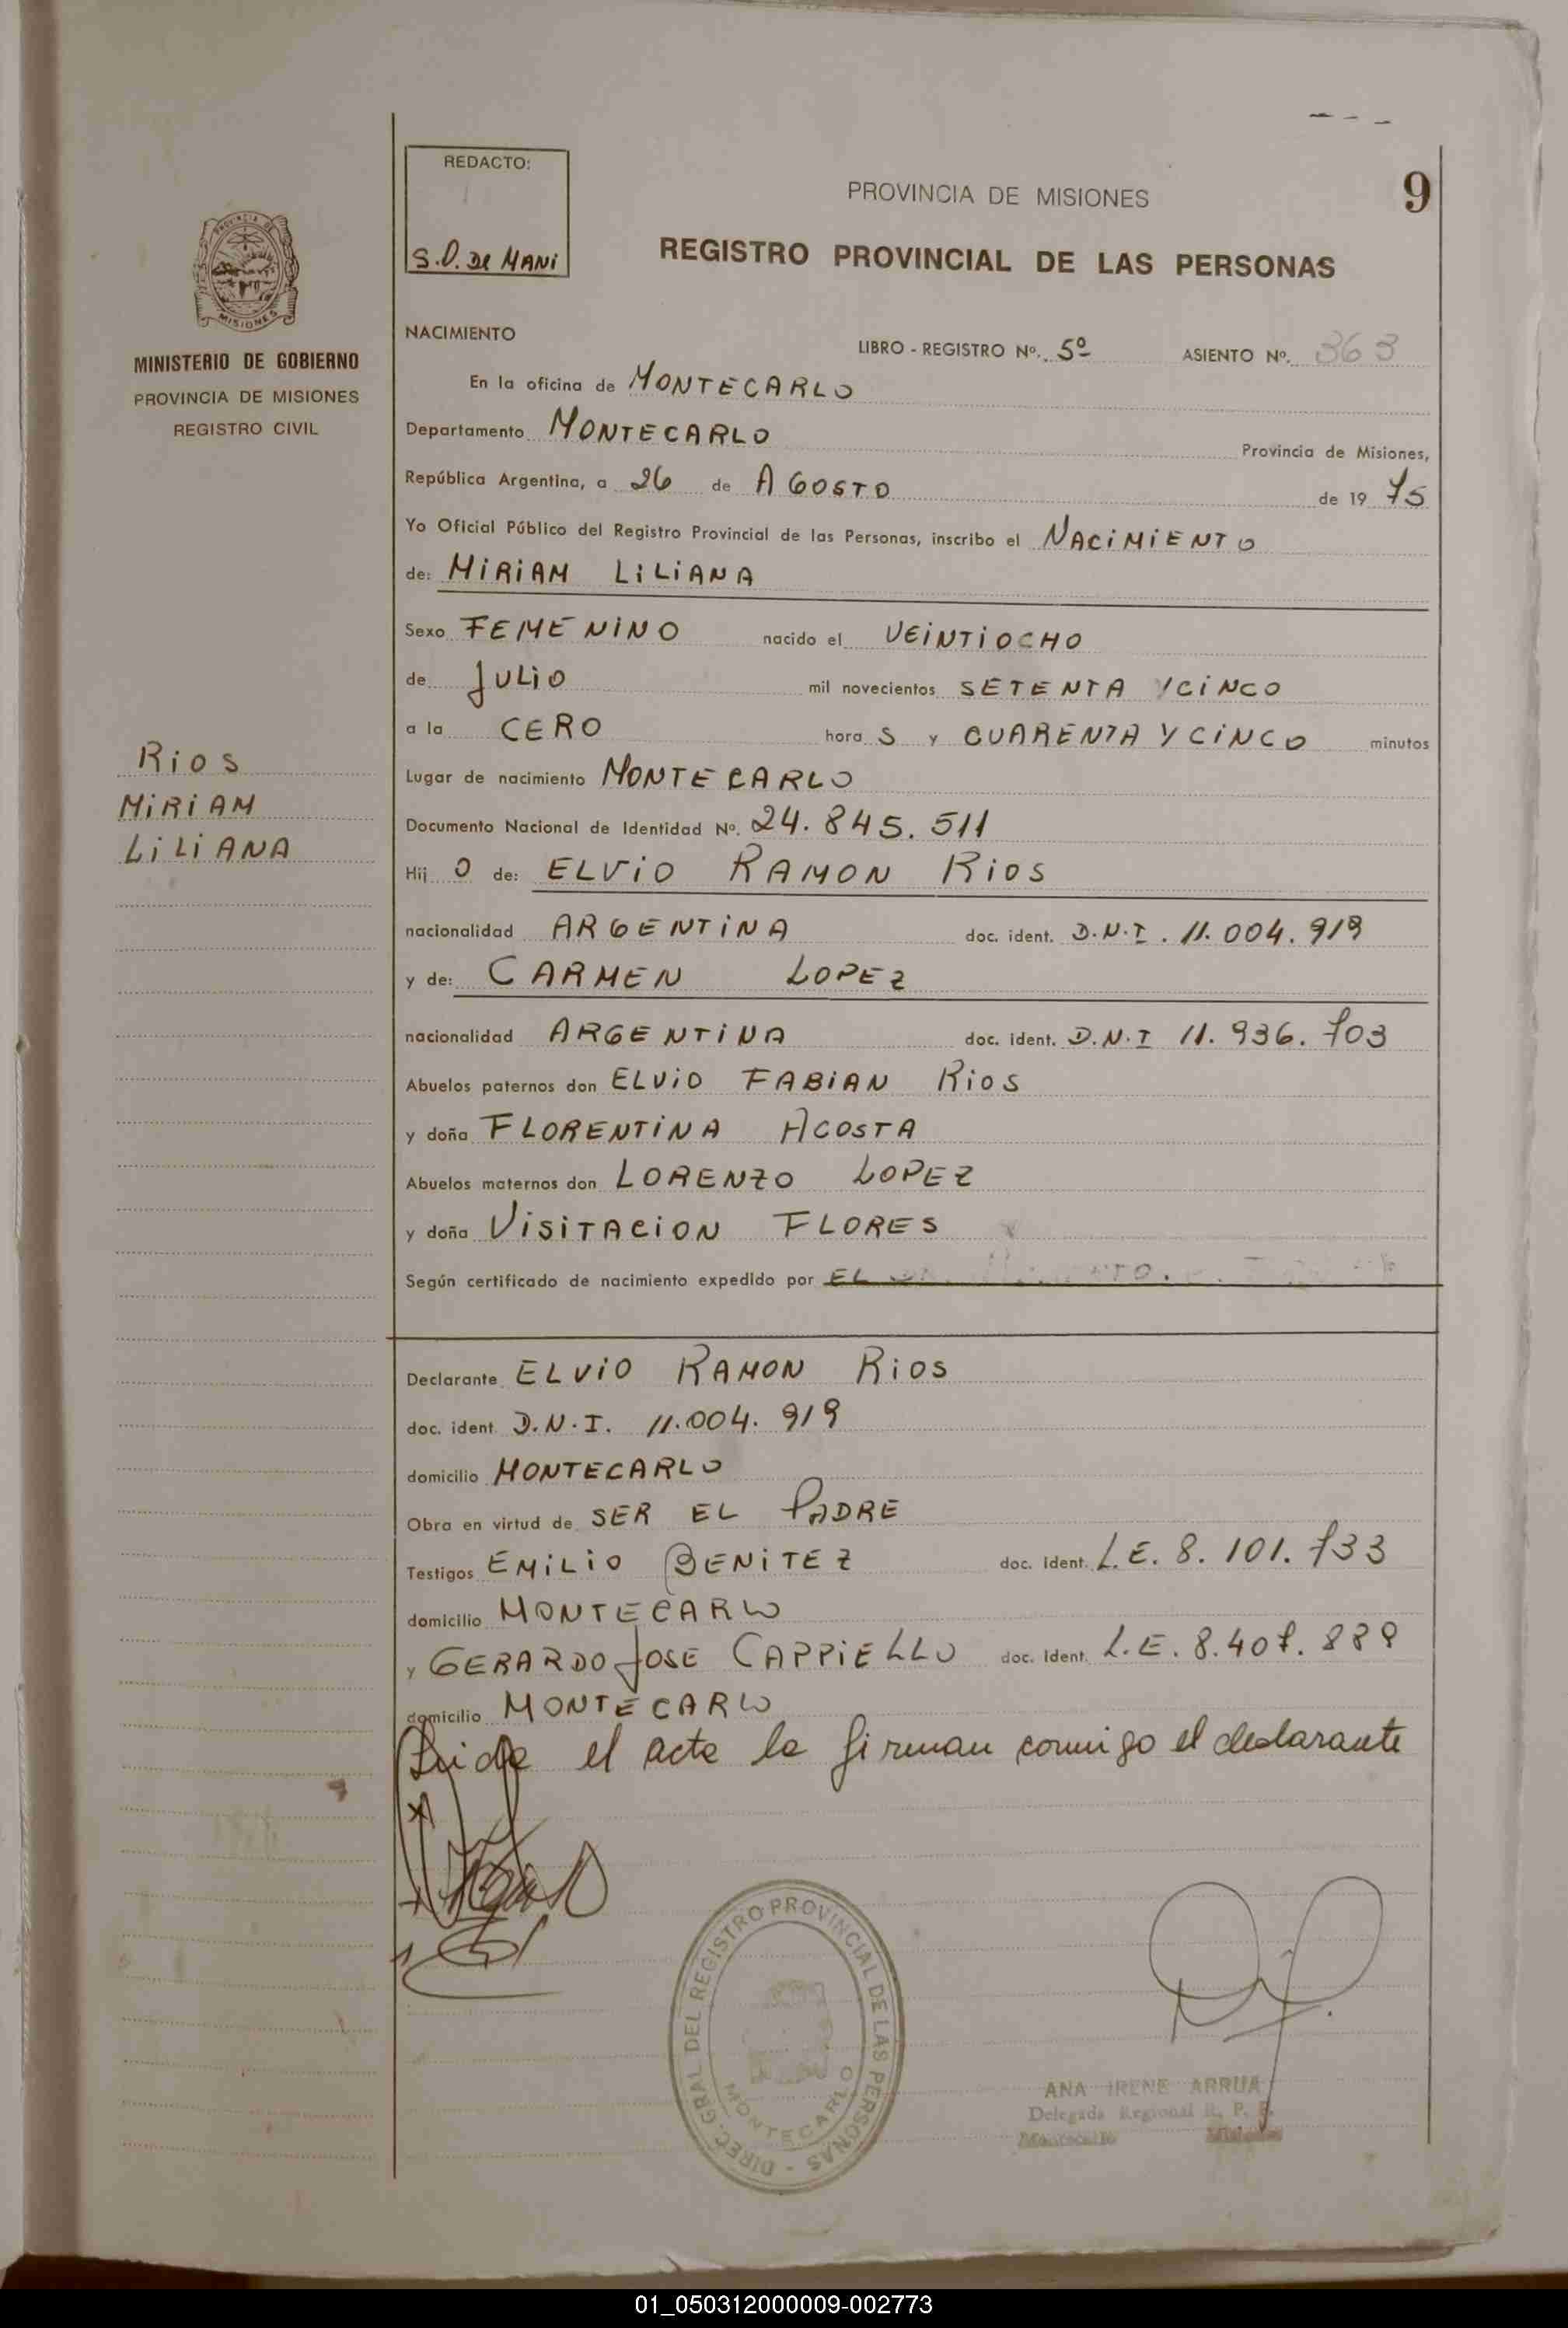 REDACTO:
S.D. DE MANI
PROVINCIA DE MISIONES
9
REGISTRO PROVINCIAL DE LAS PERSONAS
PROVINCIA DE
MISIONES
MINISTERIO DE GOBIERNO
PROVINCIA DE MISIONES
REGISTRO CIVIL
NACIMIENTO
LIBRO - REGISTRO Nº. 5º ASIENTO Nº. 363
En la oficina de MONTECARLO
Departamento MONTECARLO Provincia de Misiones,
República Argentina, a 26 de AGOSTO de 19 75
Yo Oficial Público del Registro Provincial de las Personas, inscribo el NACIMIENTO
de: MIRIAM LILIANA
Sexo FEMENINO nacido el VEINTIOCHO
de JULIO mil novecientos SETENTA Y CINCO
a la CERO hora S y CUARENTA Y CINCO minutos
Rios
MIRIAM
LILIANA
Lugar de nacimiento MONTECARLO
Documento Nacional de Identidad Nº. 24.845.511
Hij O de: ELVIO RAMON RIOS
nacionalidad ARGENTINA doc. ident. D.N.I. 11.004.919
y de: CARMEN LOPEZ
nacionalidad ARGENTINA doc. ident. D.N.I 11.936.703
Abuelos paternos don ELVIO FABIAN RIOS
y doña FLORENTINA ACOSTA
Abuelos maternos don LORENZO LOPEZ
y doña VISITACION FLORES
Según certificado de nacimiento expedido por EL
Declarante ELVIO RAMON RIOS
doc. ident. D.N.I. 11.004.919
domicilio MONTECARLO
Obra en virtud de SER EL PADRE
Testigos EMILIO BENITEZ doc. ident. L.E. 8.101.733
domicilio MONTECARLO
y GERARDO JOSE CAPPIELLO doc. ident. L.E. 8.407.889
domicilio MONTECARLO
Leida el acta la firman conmigo el declarante
DIREC. GRAL. DEL REGISTRO PROVINCIAL DE LAS PERSONAS -
MONTECARLO
ANA IRENE ARRUA
Delegada Regional R. P. P.
Montecarlo Misiones
01_050312000009-002773